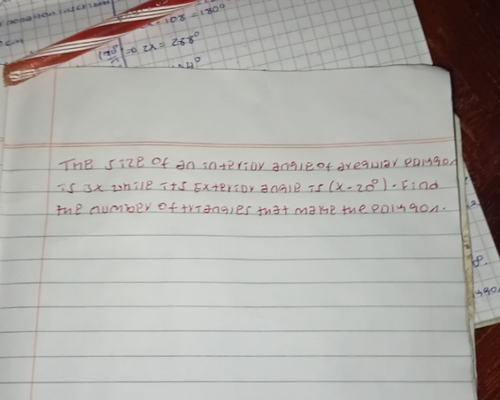 108 = 180°
2x = 288°
The size of an interior angle of a regular polygon
is 3x while its Exterior angle is (x - 20°). Find
the number of triangles that make the polygon.